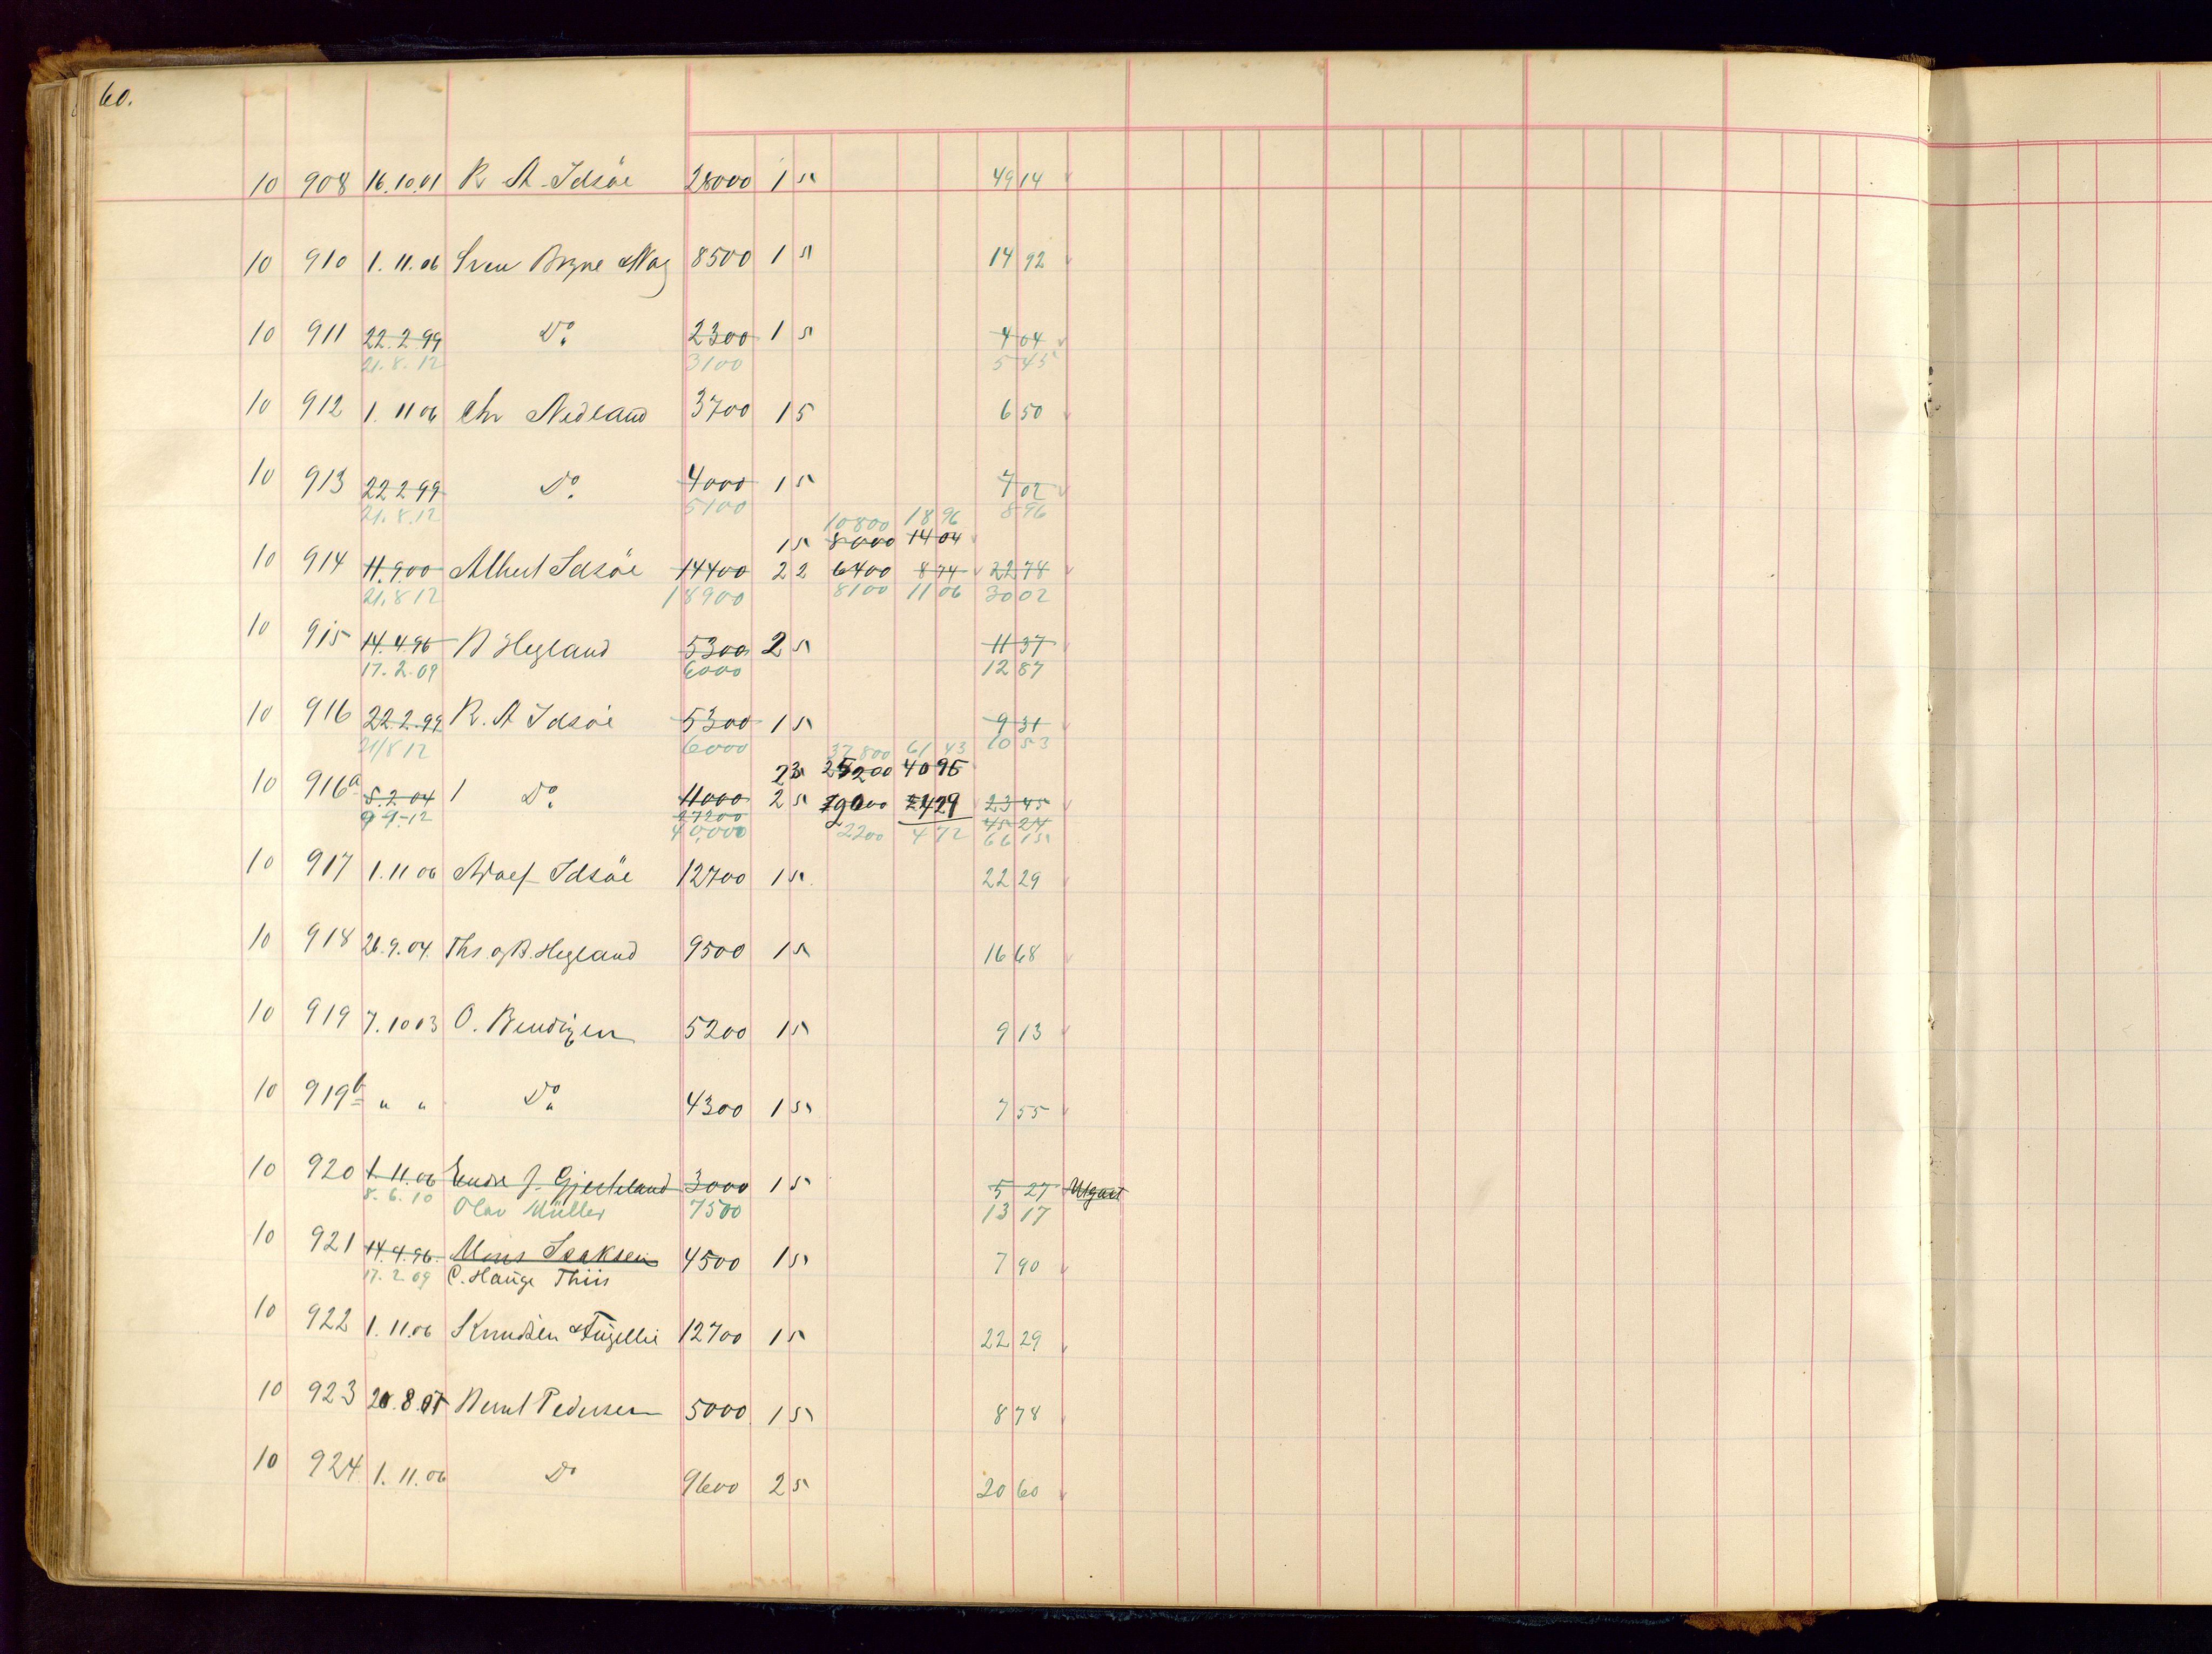 60.
10 908 16.10.01 R A. Idsöe 28000 1 5 49 14
10 910 1.11.06 Sven Bryne & Mag 8500 1 5 14 92
10 911 22.2.99 Do. 2300 1 5 4 04
21.8.12 3100 5 45
10 912 1.11 06 Chr Nedland 3700 1 5 6 50
10 913 22 2 99 Do. 4000 1 5 7 02
21.8.12 5100 8 96
10800 18 96
1 5 8000 14 04
10 914 11.9.00 Albert Idsöe 14400 2 2 6400 8 74 22 78
21.8 12 18900 8100 11 06 30 02
10 915 14.4.96 B Hegland 5300 2 5 11 37
17.2.09 6000 12 87
10 916 22.2.99 R. A Idsöe 5300 1 5 9 31
21/8 12 6000 10 53
37800 61 43
2 3 25200 40 95
10 916a 5.2 04 1 Do. 11000 2 5 24 29 23 45
9 9.-12 27200 45 24
40,000 2200 4 72 66 15
10 917 1.11 06 Adolf Idsöe 12700 1 5 22 29
10 918 26.9.04. Ths. og B. Hegland 9500 1 5 16 68
10 919 7.10 03 O. Bendixen 5200 1 5 9 13
10 919b " " Do 4300 1 5 7 55
10 920 1.11.06 Endre J. Gjesteland 3000 1 5 5 27 Utgaat
8.6.10 Olav Müller 7500 13 17
10 921 14.4.96. Mons Isaksen 4500 1 5 7 90
17.2 09 C. Hauge Thiis
10 922 1.11.06 Knudsen & Fugellie 12700 1 5 22 29
10 923 Bernt Pedersen 5000 1 5 8 78
10 924 1.11.06 Do 9600 2 5 20 60